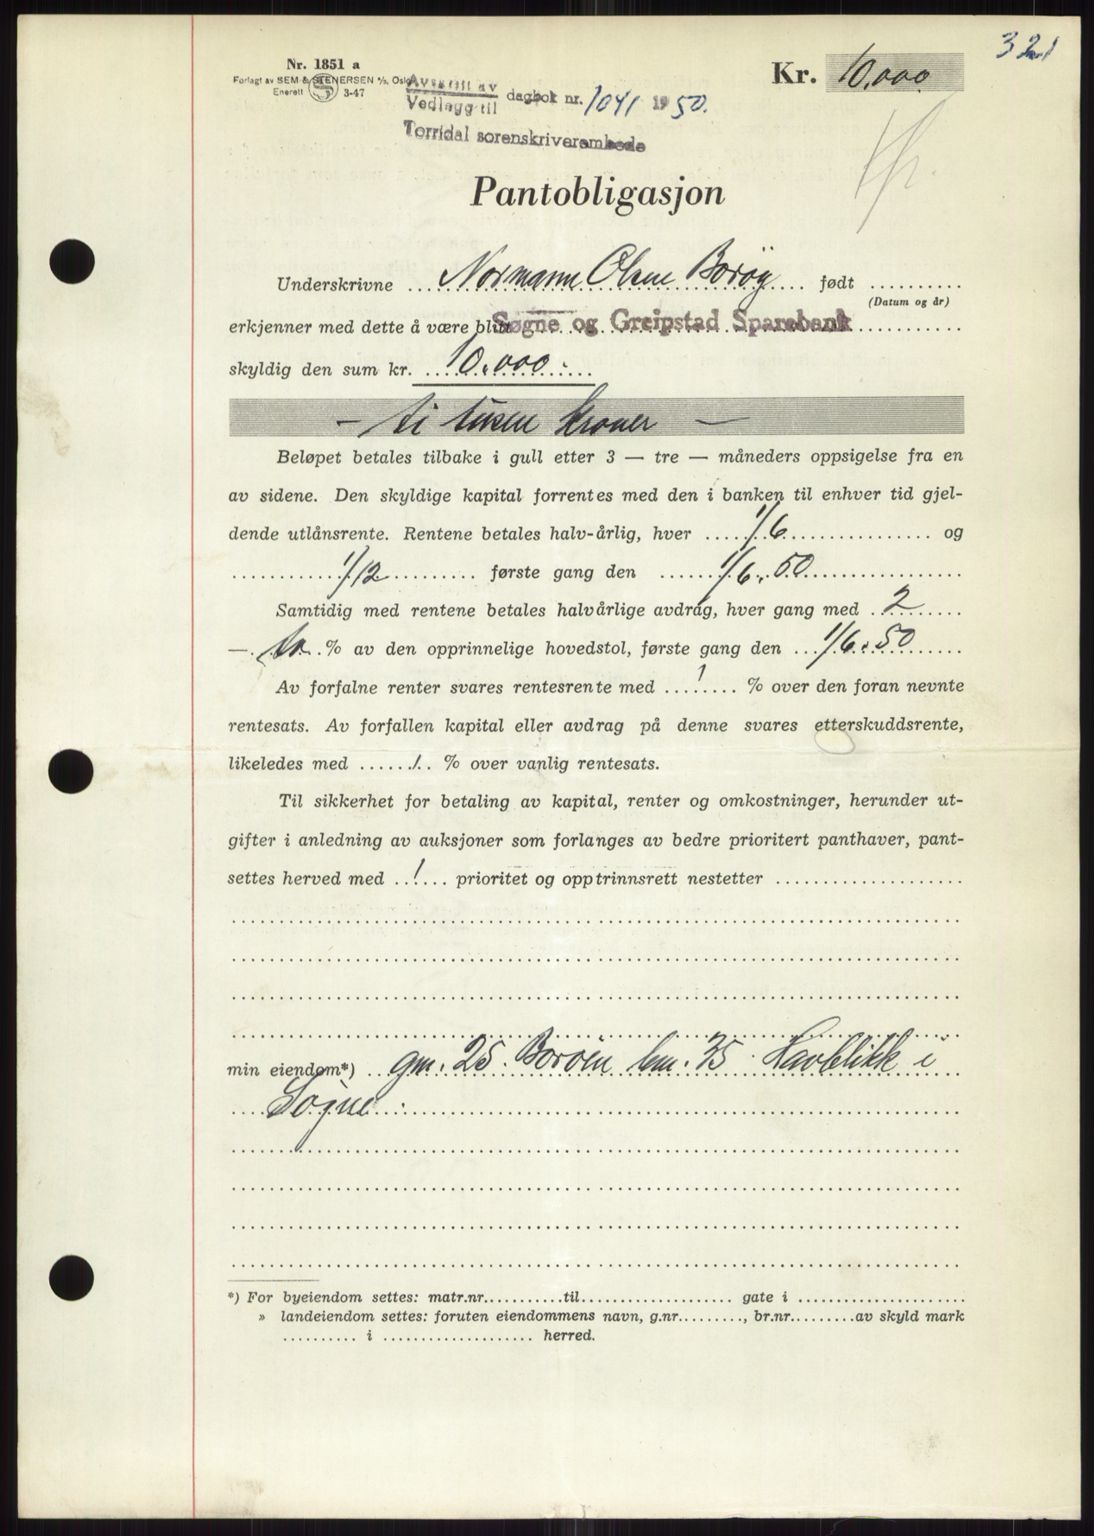 321
Nr. 1851 a
Forlagt av SEM & STENERSEN A/S, Oslo
Enerett S 3-47
Kr. 10,000
Avskrift av
Vedlagg til dagbok nr. 1041 1950.
Torridal sorenskriverembede
Pantobligasjon
Underskrivne Normann Olsen Borøy født
(Datum og år)
erkjenner med dette å være blitt Søgne og Greipstad Sparebank
skyldig den sum kr. 10.000.-
- ti tusen kroner -
Beløpet betales tilbake i gull etter 3 — tre — måneders oppsigelse fra en
av sidene. Den skyldige kapital forrentes med den i banken til enhver tid gjel-
dende utlånsrente. Rentene betales halv-årlig, hver 1/6 og
1/12 første gang den 1/6.50
Samtidig med rentene betales halvårlige avdrag, hver gang med 2
— to % av den opprinnelige hovedstol, første gang den 1/6.50
Av forfalne renter svares rentesrente med 1 % over den foran nevnte
rentesats. Av forfallen kapital eller avdrag på denne svares etterskuddsrente,
likeledes med 1 % over vanlig rentesats.
Til sikkerhet for betaling av kapital, renter og omkostninger, herunder ut-
gifter i anledning av auksjoner som forlanges av bedre prioritert panthaver, pant-
settes herved med 1 prioritet og opptrinnsrett nestetter
min eiendom*) gnr. 25 Borøen bnr. 35 Havblikk i
Søgne.
*) For byeiendom settes: matr.nr. til gate i
» landeiendom settes: foruten eiendommens navn, g.nr. , br.nr. av skyld mark
i herred.